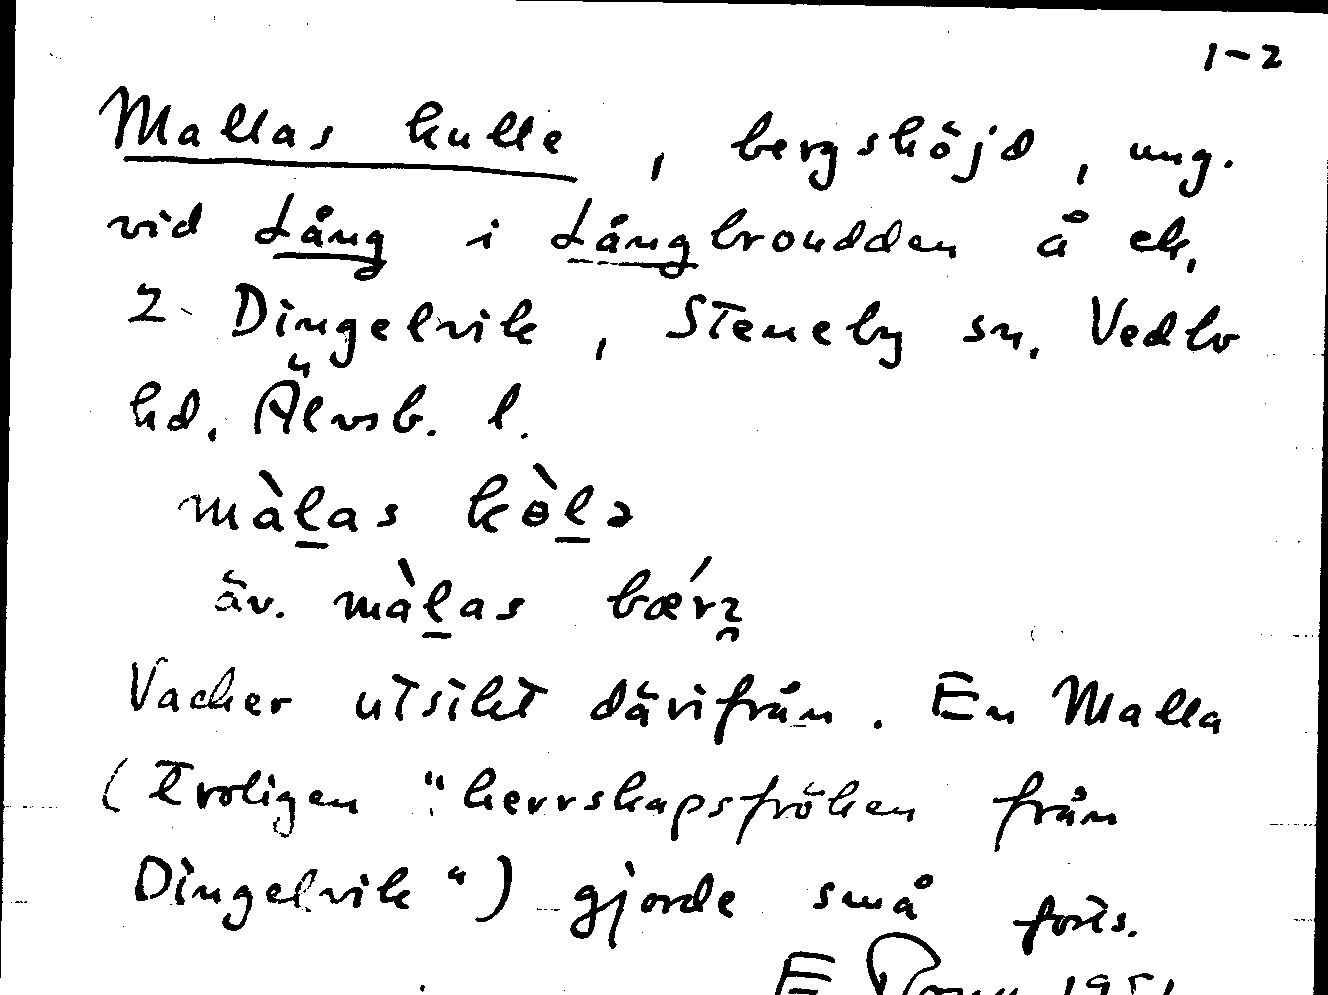 1-2
Mallas kulle, bergshöjd, ung.
vid Lång i Långbroudden å ek.
2 Dingelvik, Steneby sn. Vedbo
hd. Älvsb. l.
màl̲as kɵ̀l̲ə
äv. màl̲as bǽrz̑
Vacker utsikt därifrån. En Malla
(troligen "herrskapsfröken från
Dingelvik") gjorde små forts.
E 1951